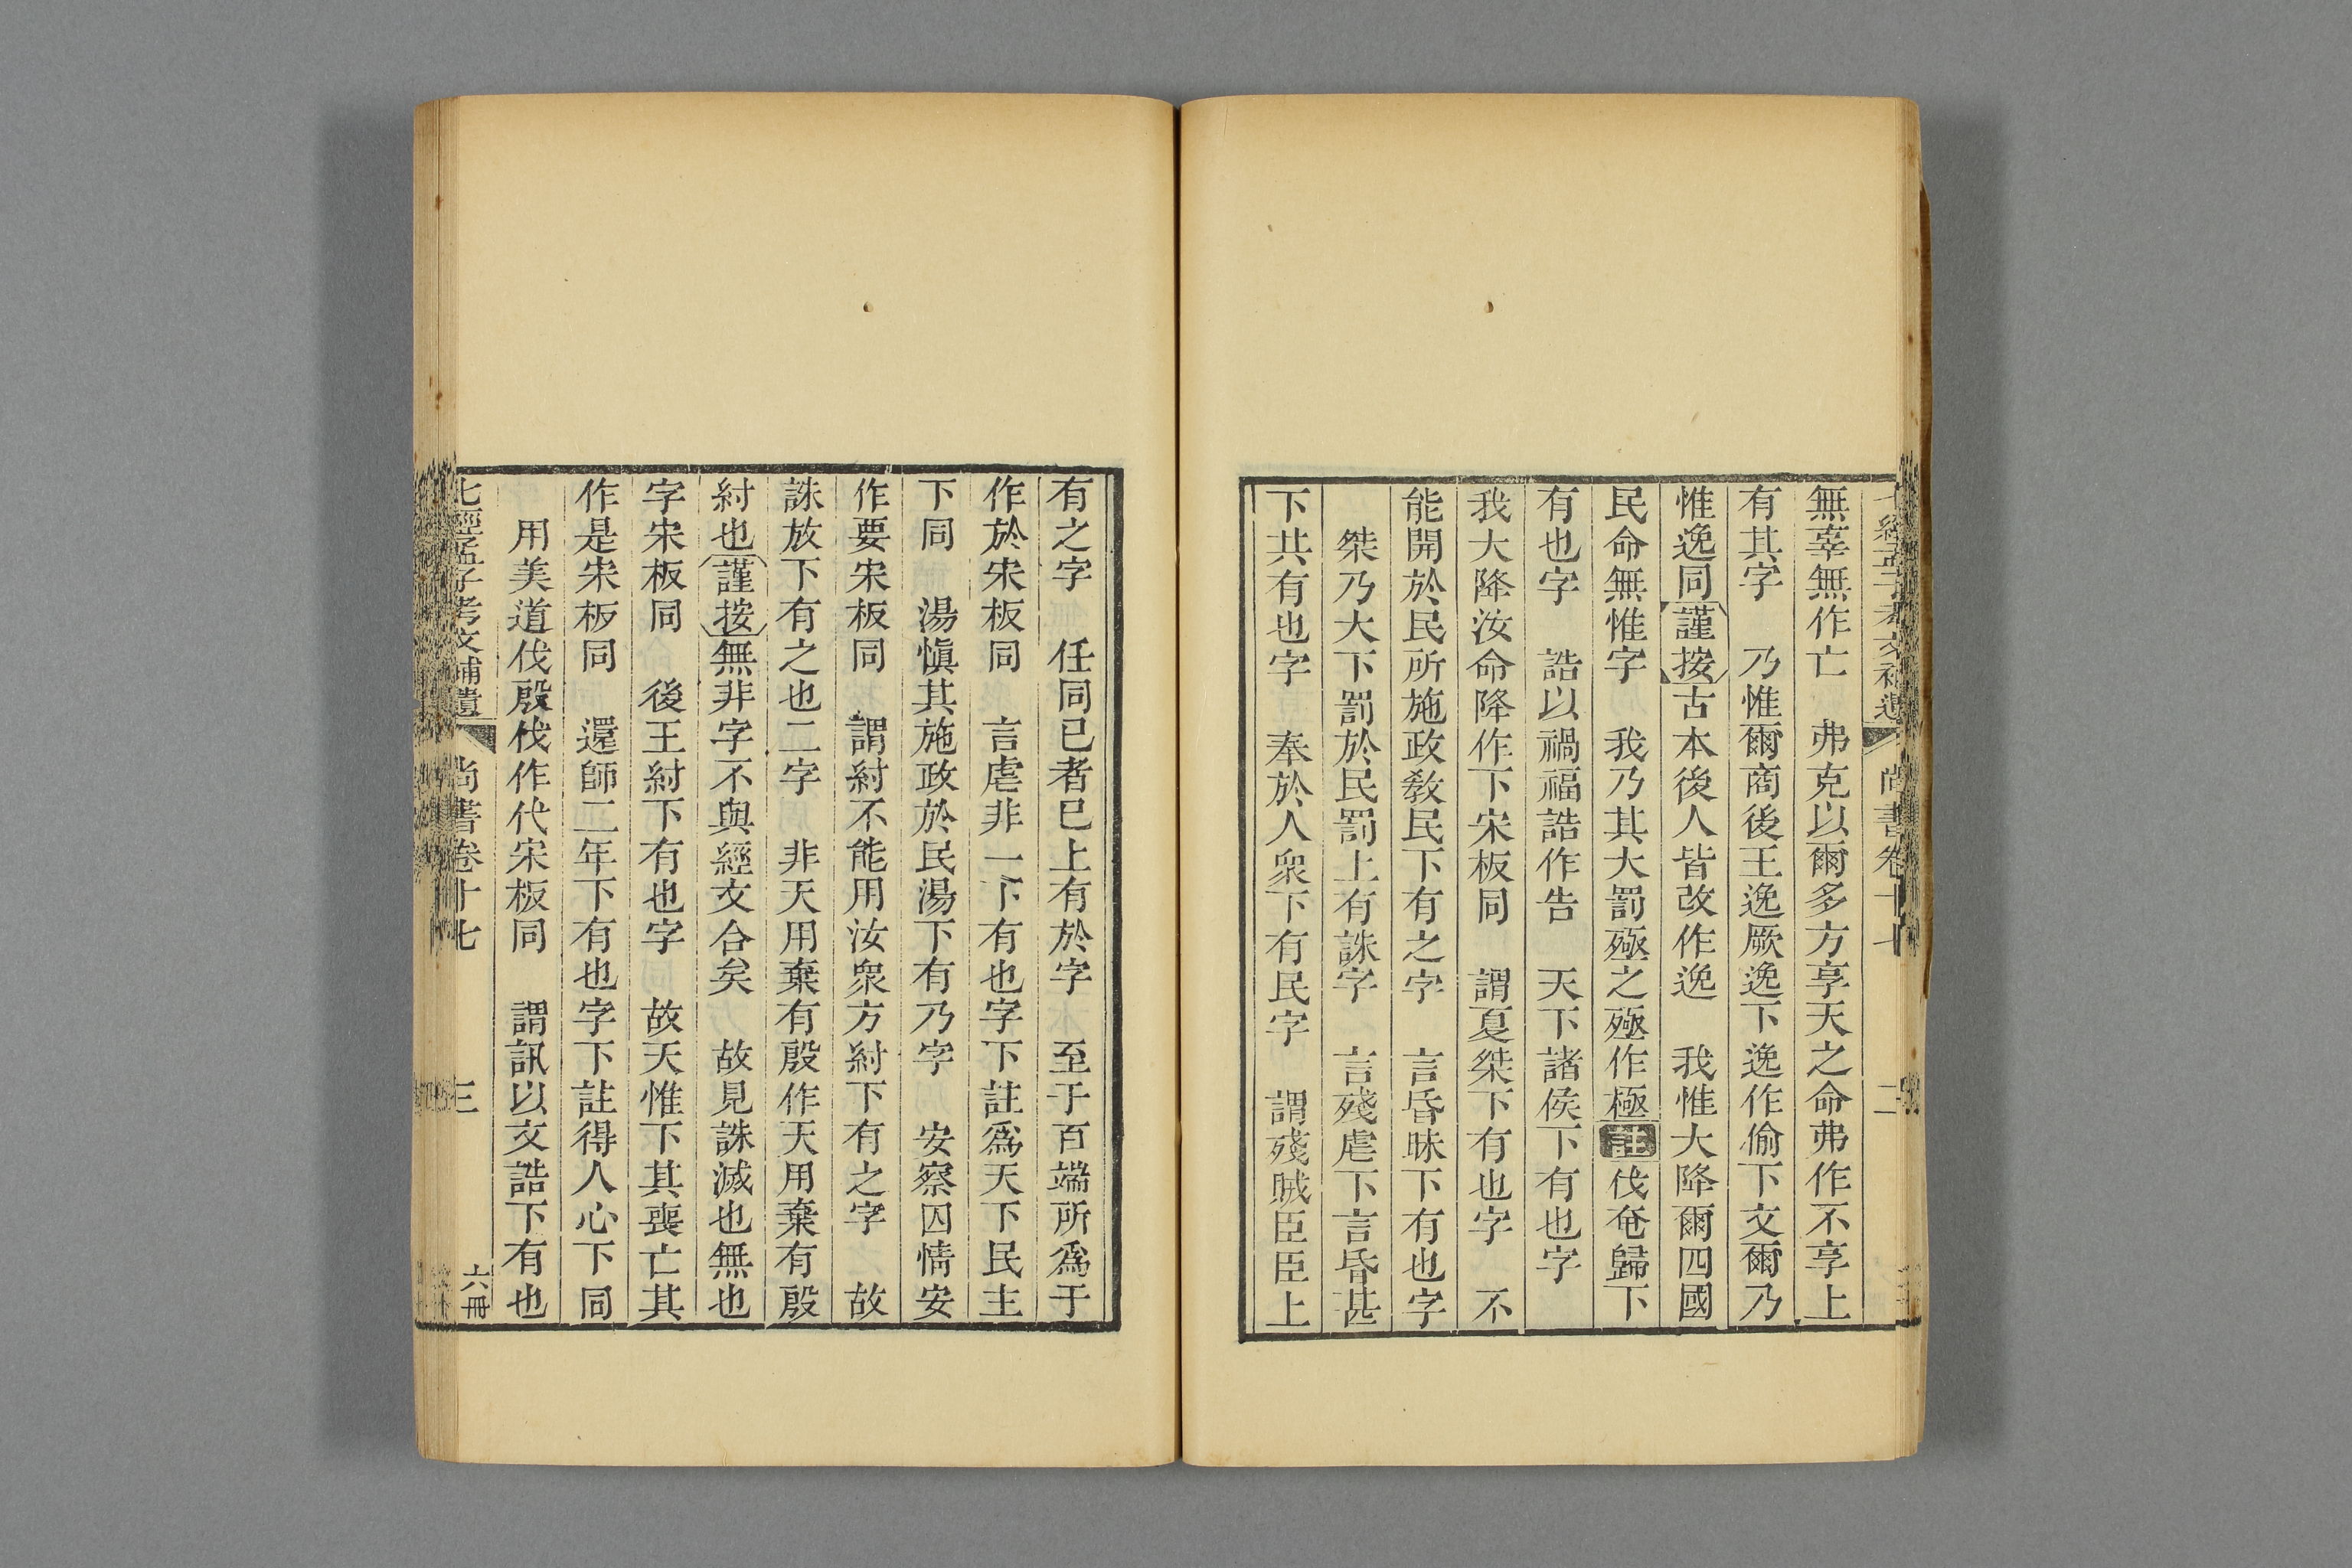 七經孟子考文補遺 尚書卷十七 二
無辜無作亡 弗克以爾多方享天之命弗作不享上
有其字 乃惟爾商後王逸厥逸下逸作偷下文爾乃
惟逸同謹按古本後人皆改作逸 我惟大降爾四國
民命無惟字 我乃其大罰殛之殛作極註伐奄歸下
有也字 誥以禍福誥作告 天下諸侯下有也字
我大降汝命降作下宋板同 謂夏桀下有也字 不
能開於民所施政教民下有之字 言昏昧下有也字
桀乃大下罰於民罰上有誅字 言殘虐下言昏甚
下共有也字 奉於人衆下有民字 謂殘賊臣臣上
有之字 任同已者已上有於字 至于百端所爲于
作於宋板同 言虐非一下有也字下註爲天下民主
下同 湯愼其施政於民湯下有乃字 安察囚情安
作要宋板同 謂紂不能用汝衆方紂下有之字 故
誅放下有之也二字 非天用棄有殷作天用棄有殷
紂也謹按無非字不與經文合矣 故見誅滅也無也
字宋板同 後王紂下有也字 故天惟下其喪亡其
作是宋板同 還師二年下有也字下註得人心下同
用美道伐殷伐作代宋板同 謂訊以文誥下有也
七經孟子考文補遺 尚書卷十七 三 六冊